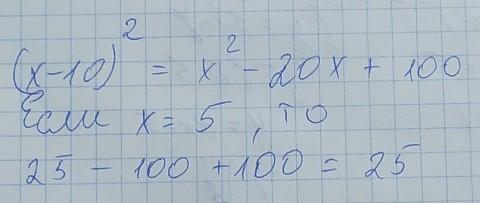 (x-10)² = x² - 20x + 100
Если x = 5, то
25 - 100 + 100 = 25